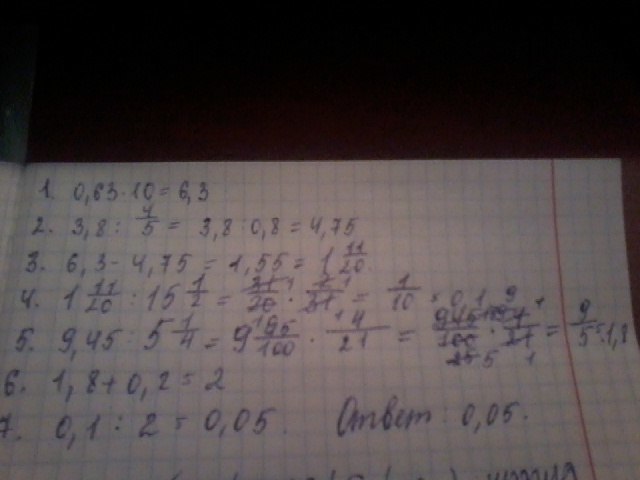 1. 0,63·10=6,3
2. 3,8 : 4/5 = 3,8:0,8=4,75
3. 6,3-4,75=1,55=1 11/20
4. 1 11/20 : 15 1/2 = 31/20 · 2/31 = 1/10 = 0,1
5. 9,45 : 5 1/4 = 9 45/100 · 4/21 = 945/100 · 4/21 = 9/5 = 1,8
6. 1,8+0,2=2
7. 0,1 : 2 = 0,05. Ответ: 0,05.